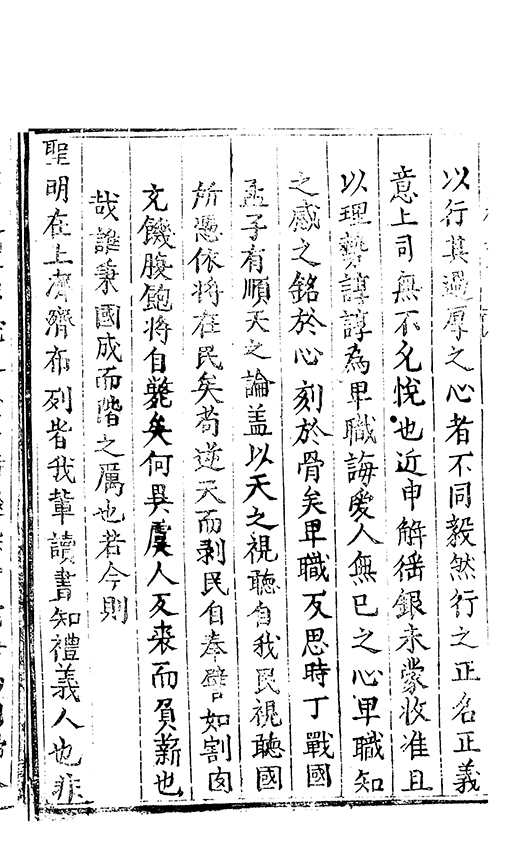 以行其過厚之心者不同毅然行之正名正義
意上司無不允悅也近申解徭銀未蒙收准且
以理勢諄諄為卑職誨愛人無已之心卑職知
之感之銘於心刻於骨矣卑職反思時丁戰國
孟子有順天之論盖以天之視聽自我民視聽國
所憑依將在民矣苟逆天而剥民自奉譬如割肉
充饑腹飽將自斃矣何異虞人反裘而負薪也
哉誰秉國成而階之厲也若今則
聖明在上濟濟布列皆我輩讀書知禮義人也非